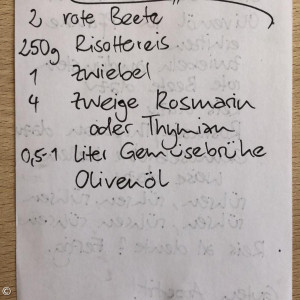 2 rote Beete
250g Risottoreis
1 Zwiebel
4 Zweige Rosmarin
oder Thymian
0,5-1 Liter Gemüsebrühe
Olivenöl
©